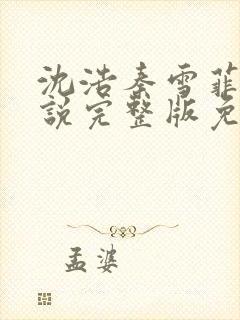 沈浩秦雪菲
说完整版免
孟婆